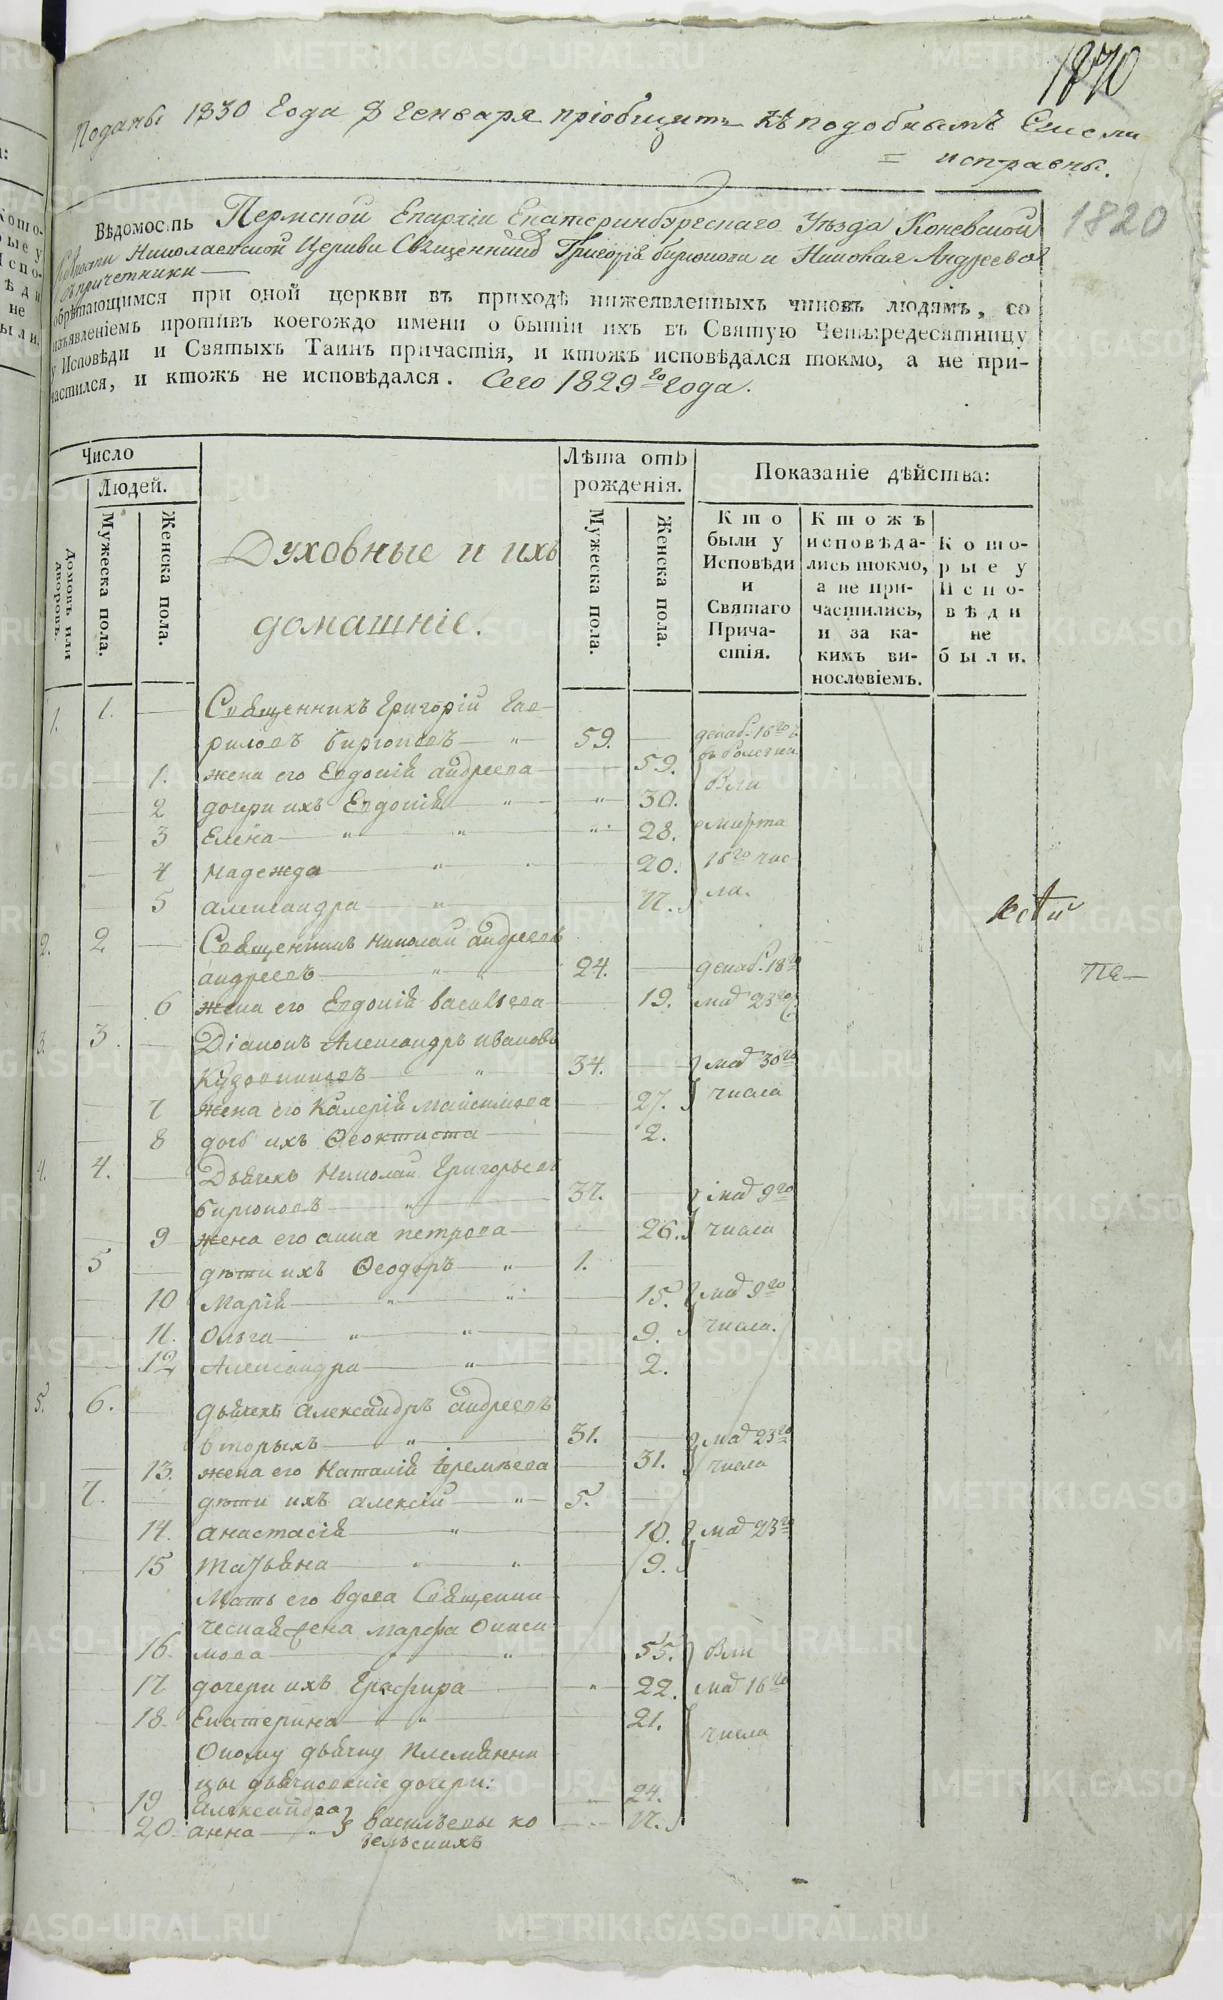 1870
Поданы 1830 Года 8 Генваря пріобщить къ подобнымъ
исправны.
1820
Вѣдомость Пермской Епархіи Екатеринбургскаго Уѣзда Коневской
Николаевской Церкви Священники Григорій Бирюковъ и Николай Андреевъ
съ причетники
обрѣтающимся при оной церкви въ приходѣ нижеявленныхъ чиновъ людямъ, со
изъявленіемъ противъ коегождо имени о бытіи ихъ въ Святую Четыредесятницу
у Исповѣди и Святыхъ Таинъ причастія, и ктожъ исповѣдался токмо, а не при-
частился, и ктожъ не исповѣдался. Сего 1829го года.
Число
Людей.
Домовъ или дворовъ.
Мужеска пола.
Женска пола.
Духовные и ихъ
домашніе.
Лѣта отъ
рожденія.
Мужеска пола.
Женска пола.
Показаніе дѣйства:
Кто
были у
Исповѣди
и
Святаго
Прича-
стія.
Ктожъ
исповѣда-
лись токмо,
а не при-
частились,
и за ка-
кимъ ви-
нословіемъ.
Кото-
рые у
Испо-
вѣди
не
были.
1. 1. Священникъ Григорій Гав-
риловъ Бирюковъ 59. декаб. 16го
въ болезни
1. жена его Евдокія Андреева 59.
2 дочери ихъ Евдокія 30.
3 Елена 28. марта
4 Надежда 20. 16го чис
5 Александра 17. ла.
2. 2 Священникъ Николай Андреевъ
Андреевъ 24. декаб. 18го
6 жена его Евдокія Васильева 19. мар 23го
3. 3. Діаконъ Александръ Ивановъ
Кузовниковъ 34. мар 30го
7 жена его Калерія Максимова 27. числа
8 дочь ихъ Ѳеоктиста 2.
4. 4. Дьячекъ Николай Григорьевъ
Бирюковъ 37. мар 9го
9 жена его Анна Петрова 26. числа
5 дѣти ихъ Ѳеодоръ 1.
10 Марія 15. мар 9го
11. Ольга 9. числа.
12 Александра 2.
5. 6. дьячекъ Александръ Андреевъ
вторыхъ 31. мар 23го
13. жена его Наталія Іеремѣева 31. числа
7. дѣти ихъ Алексій 5.
14. Анастасія 10. мар 23го
15 Татьяна 9.
Мать его вдова Священни
ческая жена Марфа Ониси
16. мова 55.
17 дочери ихъ Графира 22. мар 16го
18. Екатерина 21. числа
Оному дьячку племянни
цы дьяческие дочери:
19 Александра 24.
20. Анна Васильевы ко
зельскихъ 17.
METRIKI.GASO-URAL.RU